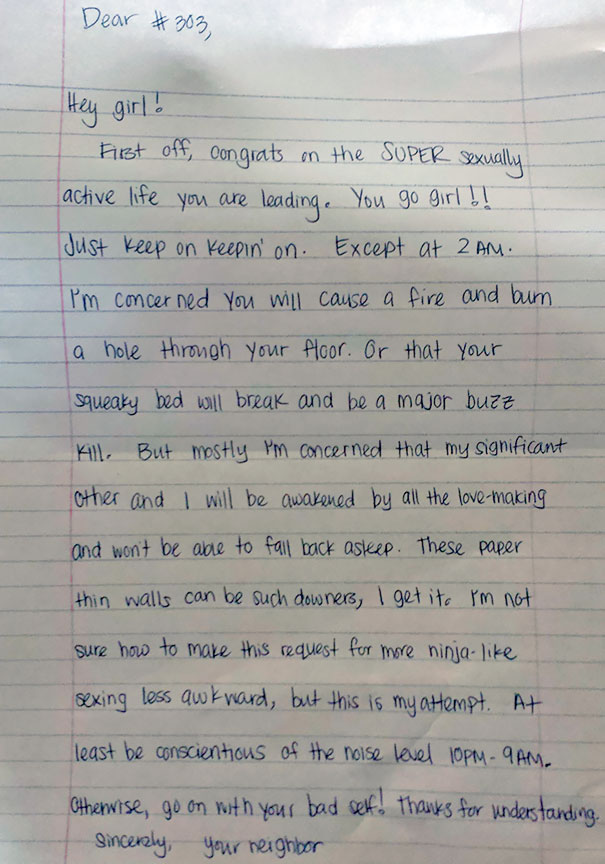 Dear #303,
Hey girl!
First off, congrats on the SUPER sexually
active life you are leading. You go girl!!
Just keep on keepin' on. Except at 2 AM.
I'm concerned you will cause a fire and burn
a hole through your floor. Or that your
squeaky bed will break and be a major buzz
kill. But mostly I'm concerned that my significant
other and I will be awakened by all the love-making
and won't be able to fall back asleep. These paper
thin walls can be such downers, I get it. I'm not
sure how to make this request for more ninja-like
sexing less awkward, but this is my attempt. At
least be conscientious of the noise level 10PM-9AM.
Otherwise, go on with your bad self! Thanks for understanding.
Sincerely, your neighbor